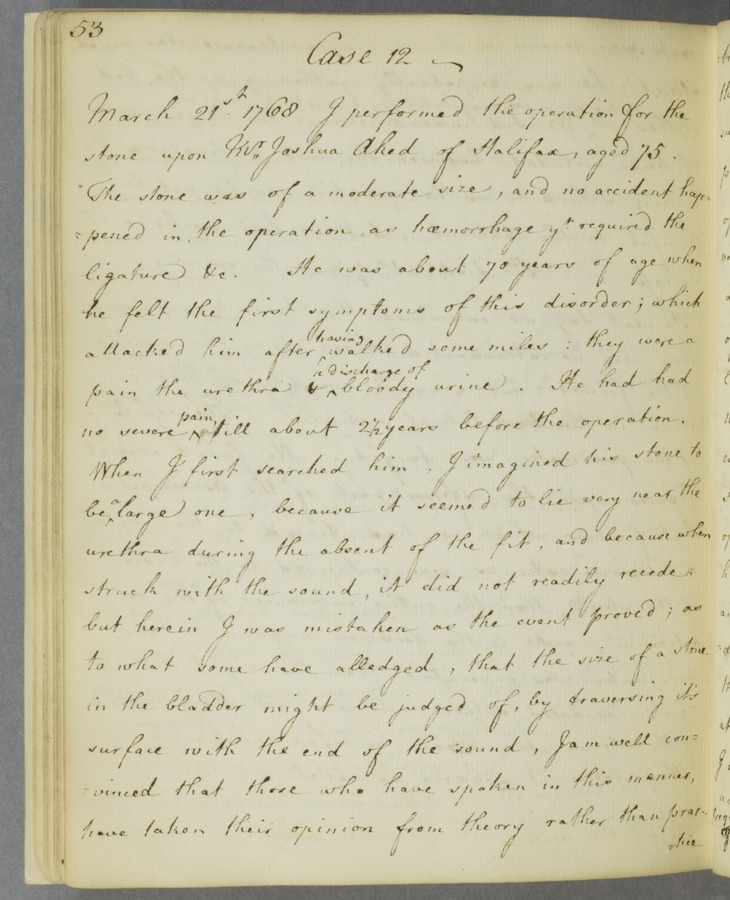 53
Case 12
March 21st. 1768 I performed the operation for the
stone upon Mr. Joshua Aked of Halifax, aged 75.
The stone was of a moderate size, and no accident hap-
=pened in the operation, as hæmorrhage yt required the
ligature &c. He was about 70 years of age when
he felt the first symptoms of this disorder; which
attacked him after having walked some miles: they were a
pain the urethra & a discharge of bloody urine. He had had
no severe pain till about 2½ years before the operation.
When I first searched him, I imagined his stone to
be a large one, because it seemed to lie very near the
urethra during the absent of the fit, and because when
struck with the sound, it did not readily recede:
but herein I was mistaken as the event proved; as
to what some have alledged, that the size of a stone
in the bladder might be judged of, by traversing it's
surface with the end of the sound, I am well con=
=vinced that those who have spoken in this manner,
have taken their opinion from theory rather than prac-
=tice